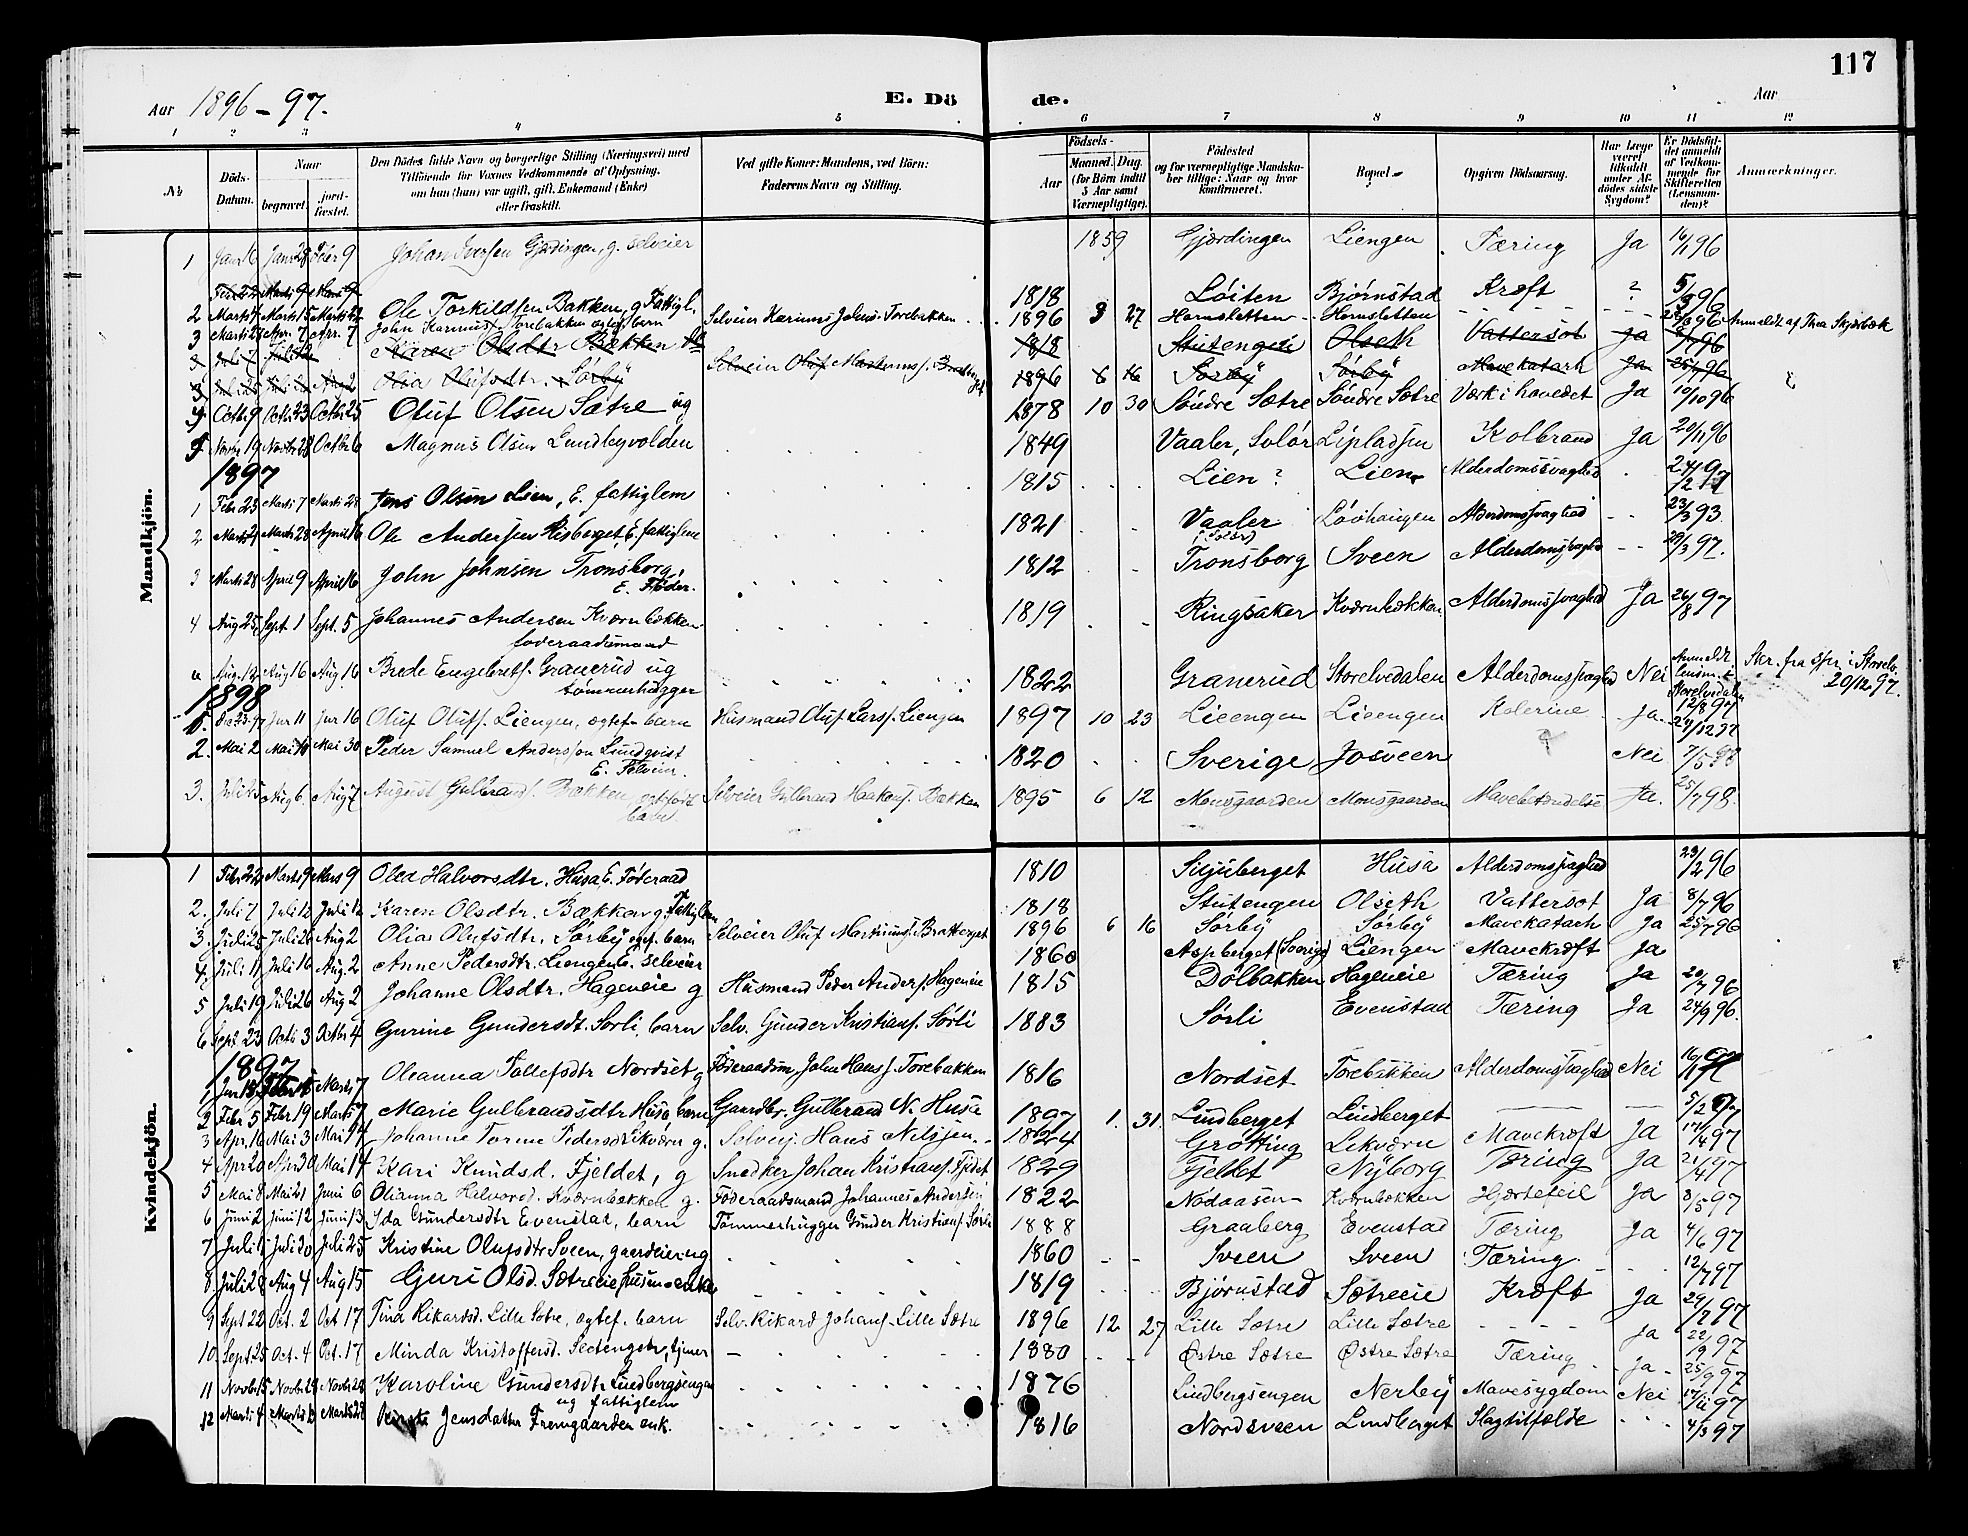 117
Aar 1896-97. E. Dö de. Aar
1 2 3 4 5 6 7 8 9 10 11 12
№ Döds-Datum. Naar begravet. jordfæstet. Den Dödes fulde Navn og borgerlige Stilling (Næringsvei) med Tilföiende for Voxnes Vedkommende af Oplysning, om han (hun) var ugift, gift, Enkemand (Enke) eller fraskilt. Ved gifte Koner: Mandens, ved Börn: Faderens Navn og Stilling. Födsels- Aar Maaned. Dag. (for Börn indtil 5 Aar samt Værnepligtige). Födested og for værnepligtige Mandskaber tillige: Naar og hvor konfirmeret. Bopæl. Opgiven Dödsaarsag. Har Læge været tilkaldt under Afdödes sidste Sygdom? Er Dödsfaldet anmeldt af Vedkommende for Skifteretten (Lensmanden)? Anmærkninger.
Mandkjön.
1 Jan 16 Janr 28 Febr 9 Johan Iversen Gjærdingen, g. selveier 1859 Gjærdingen Liengen Tæring Ja 16/1 96
Febr 22 Marts 9 Marts 9
2 Marts 4 Marts 15 Marts 22 Ole Torkildsen Bakken, g Fattigl. 1818 Löiten Bjørnstad Kræft ? 5/3 96
3 Marts 28 Apr. 7 Apr. 7 John Karinius Torebakken egtef. barn Selveier Karinius Johns. Torebakken 1896 3 27 Hornsletten Hornsletten 28/3 96 Anmeldt af Thea Skjærbæk
3 Juli 7 Juli 12 Karen Olsdtr Bækken 1818 Stutengen Olseth Vattersot Ja 8/7 96
3 Juli 25 Olia Olufsdtr. Sørby Selveier Oluf Martinius. Bratberget 1896 6 16 Sørby Sørby Mavekatarh Ja 25/7 96
4 Octbr 9 Octbr 23 Octbr 25 Oluf Olsen Sætre ug 1878 10 30 Søndre Sætre Søndre Sætre Værk i hovedet Ja 10/10 96
5 Novbr 19 Novbr 28 Octbr 6 Magnus Olsen Lundbyvolden 1849 Vaaler, Solör Lipladsen Kolbrand Ja 20/11 96
1897
1 Febr 23 Marts 7 Marts 28 Jens Olsen Lien, E. fattiglem 1815 Lien? Lien Alderdomssvaghed 24/2 97
2 Marts 21 Marts 28 April 16 Ole Andersen Risberget E. fattiglem 1821 Vaaler (Solör) Lövhaugen Alderdomssvaghed 23/3 93
3 Marts 28 April 9 April 16 John Johnsen Tronsborg E. Föder. 1812 Tronsborg Sveen Alderdomssvaghed 29/3 97.
4 Aug 25 Sept. 1 Sept. 5 Johannes Andersen Kværnbækken foderaadsmand 1819 Ringsaker Kværnbækken Alderdomssvaghed Ja 26/8 97
a Aug. 12 Aug 16 Aug 16 Brede Engebrets. Granerud ug tömmerhugger 1822 Granerud Storelvedalen Alderdomssvaghed Nei Anmeldt Lensm. i Storelvedalen 12/8 97 Skr. fra spr. i Storelv. 20/12 97.
1898
1. Dec 23-97 Jan 11 Jan 16 Oluf Olufs. Liengen, egtef. barn Husmand Oluf Larss. Liengen 1897 10 23 Lieengen Lieengen Kolerine Ja 29/12 97
2. Mai 2 Mai 10 Mai 30 Peder Samuel Andersson Lundqvist E. Selveier. 1820 Sverige Josveen Nei 7/5 98
3. Juli 25 Aug 6 Aug 7 August Gulbrands. Bækken, egtefødt barn. Selveier Gulbrand Haakens. Bakken 1895 6 12 Monsgaarden Monsgaarden Mavebetændelse Ja. 25/7 98.
Kvindekjön.
1 Febr. 22 Marts 9 Mars 9 Olea Halvorsdtr. Husa, E. Föderaad 1810 Skjuberget Husa Alderdomssvaghed 23/2 96
2. Juli 7 Juli 12 Juli 12 Karen Olsdtr. Bækken g. Fattiglem 1818 Stutengen Olseth Vattersot Ja 8/7 96
3. Juli 25 Juli 26 Aug 2 Olia Olufsdtr. Sørby egtef. barn Selveier Oluf Martinius. Bratberget 1896 6 16 Sørby Sørby Mavekatarh Ja 25/7 96
4. Juli 11 Juli 16 Aug. 2 Anne Pedersdtr. Liengen E. selveier 1860 Aspberget (Sverige) Liengen Mavekræft Ja
5 Juli 19 Juli 26 Aug 2 Johanne Olsdtr. Hageneie g Husmand Peder Anders. Hageneie 1815 Dölbakken Hageneie Tæring Ja 20/7 96
6 Sept 23 Octb 3 Octbr 4 Gurine Gundersdt. Sørli, barn Selv. Gunder Kristians. Sørli 1883 Sørli Evenstad Tæring Ja 24/9 96.
1897
1. Jan 15 Marts 7 Oleanna Tollefsdtr Nordset g Föderaadsm. John Hans s. Torebakken 1816 Nordset Torebakken Alderdomssvaghed Nei 16/1 97
2 Febr 5 Febr 19 Marts 7 Marie Gulbrandsdtr Husa, barn Gaardbr. Gulbrand N. Husa 1897 1. 31 Lindberget Lindberget 5/2 97
3 Apr. 16 Mai 3 Mai 14 Johanne Torine Pedersdtr Lekværn g. Selveij. Hans Nilssen 1824 Grøtting Lekværn Mavekræft Ja 17/4 97
4 Apr 20 Apr 30 Mai 14 Kari Knudsd. Fjeldet, g Snedker Johan Kristians. Fjeldet 1829 Fjeldet Nÿborg Tæring Ja 21/4 97
5 Mai 8 Mai 21 Juni 6 Olianna Halvord. Kværnbækken g. Föderaadsmand Johannes Andersen 1822 Nodaasen Kværnbækken Hjertefeil Ja 8/5 97
6 Juni 2 Juni 12 Juni 13 Ida Gundersdtr Evenstad, barn Tømmerhugger Gunder Kristians Sørli 1888 Graaberg Evenstad Tæring Ja 4/6 97
7 Juli 20 Juli 25 Kristine Olufsdtr Sveen, gaardeier ug 1860 Sveen Sveen Tæring. 12/7 97
8 Juli 28 Aug 4 Aug 15 Guri Olsd. Sætreeie, husm-enke 1819 Bjørnstad Sætreeie Kræft Ja 29/7 97
9 Sept 22 Oct. 2 Oct 17 Tina Rikardsd. Lille Sætre, egtef. barn Selv. Rikard Johans. Lille Sætre 1896 12 27 Lille Sætre Lille Sætre Ja 22/9 97
10. Sept 25 Oct. 4 Oct. 17 Minda Kristoffersd. tjener 1880 Østre Sætre Østre Sætre Tæring Ja 25/9 97
11 Novbr 15 Novbr 28 Novbr 28 Karoline Gundersdtr Lindbergsengen ug fattiglem 1876 Lindbergsengen Nerbÿ Mavesygdom Nei 17/11 97
12 Marts 4 Marts Marts 28 Jensdatter Fremgaarden enk. 1816 Nordsveen Lindberget Slagtilfælde 4/3 97